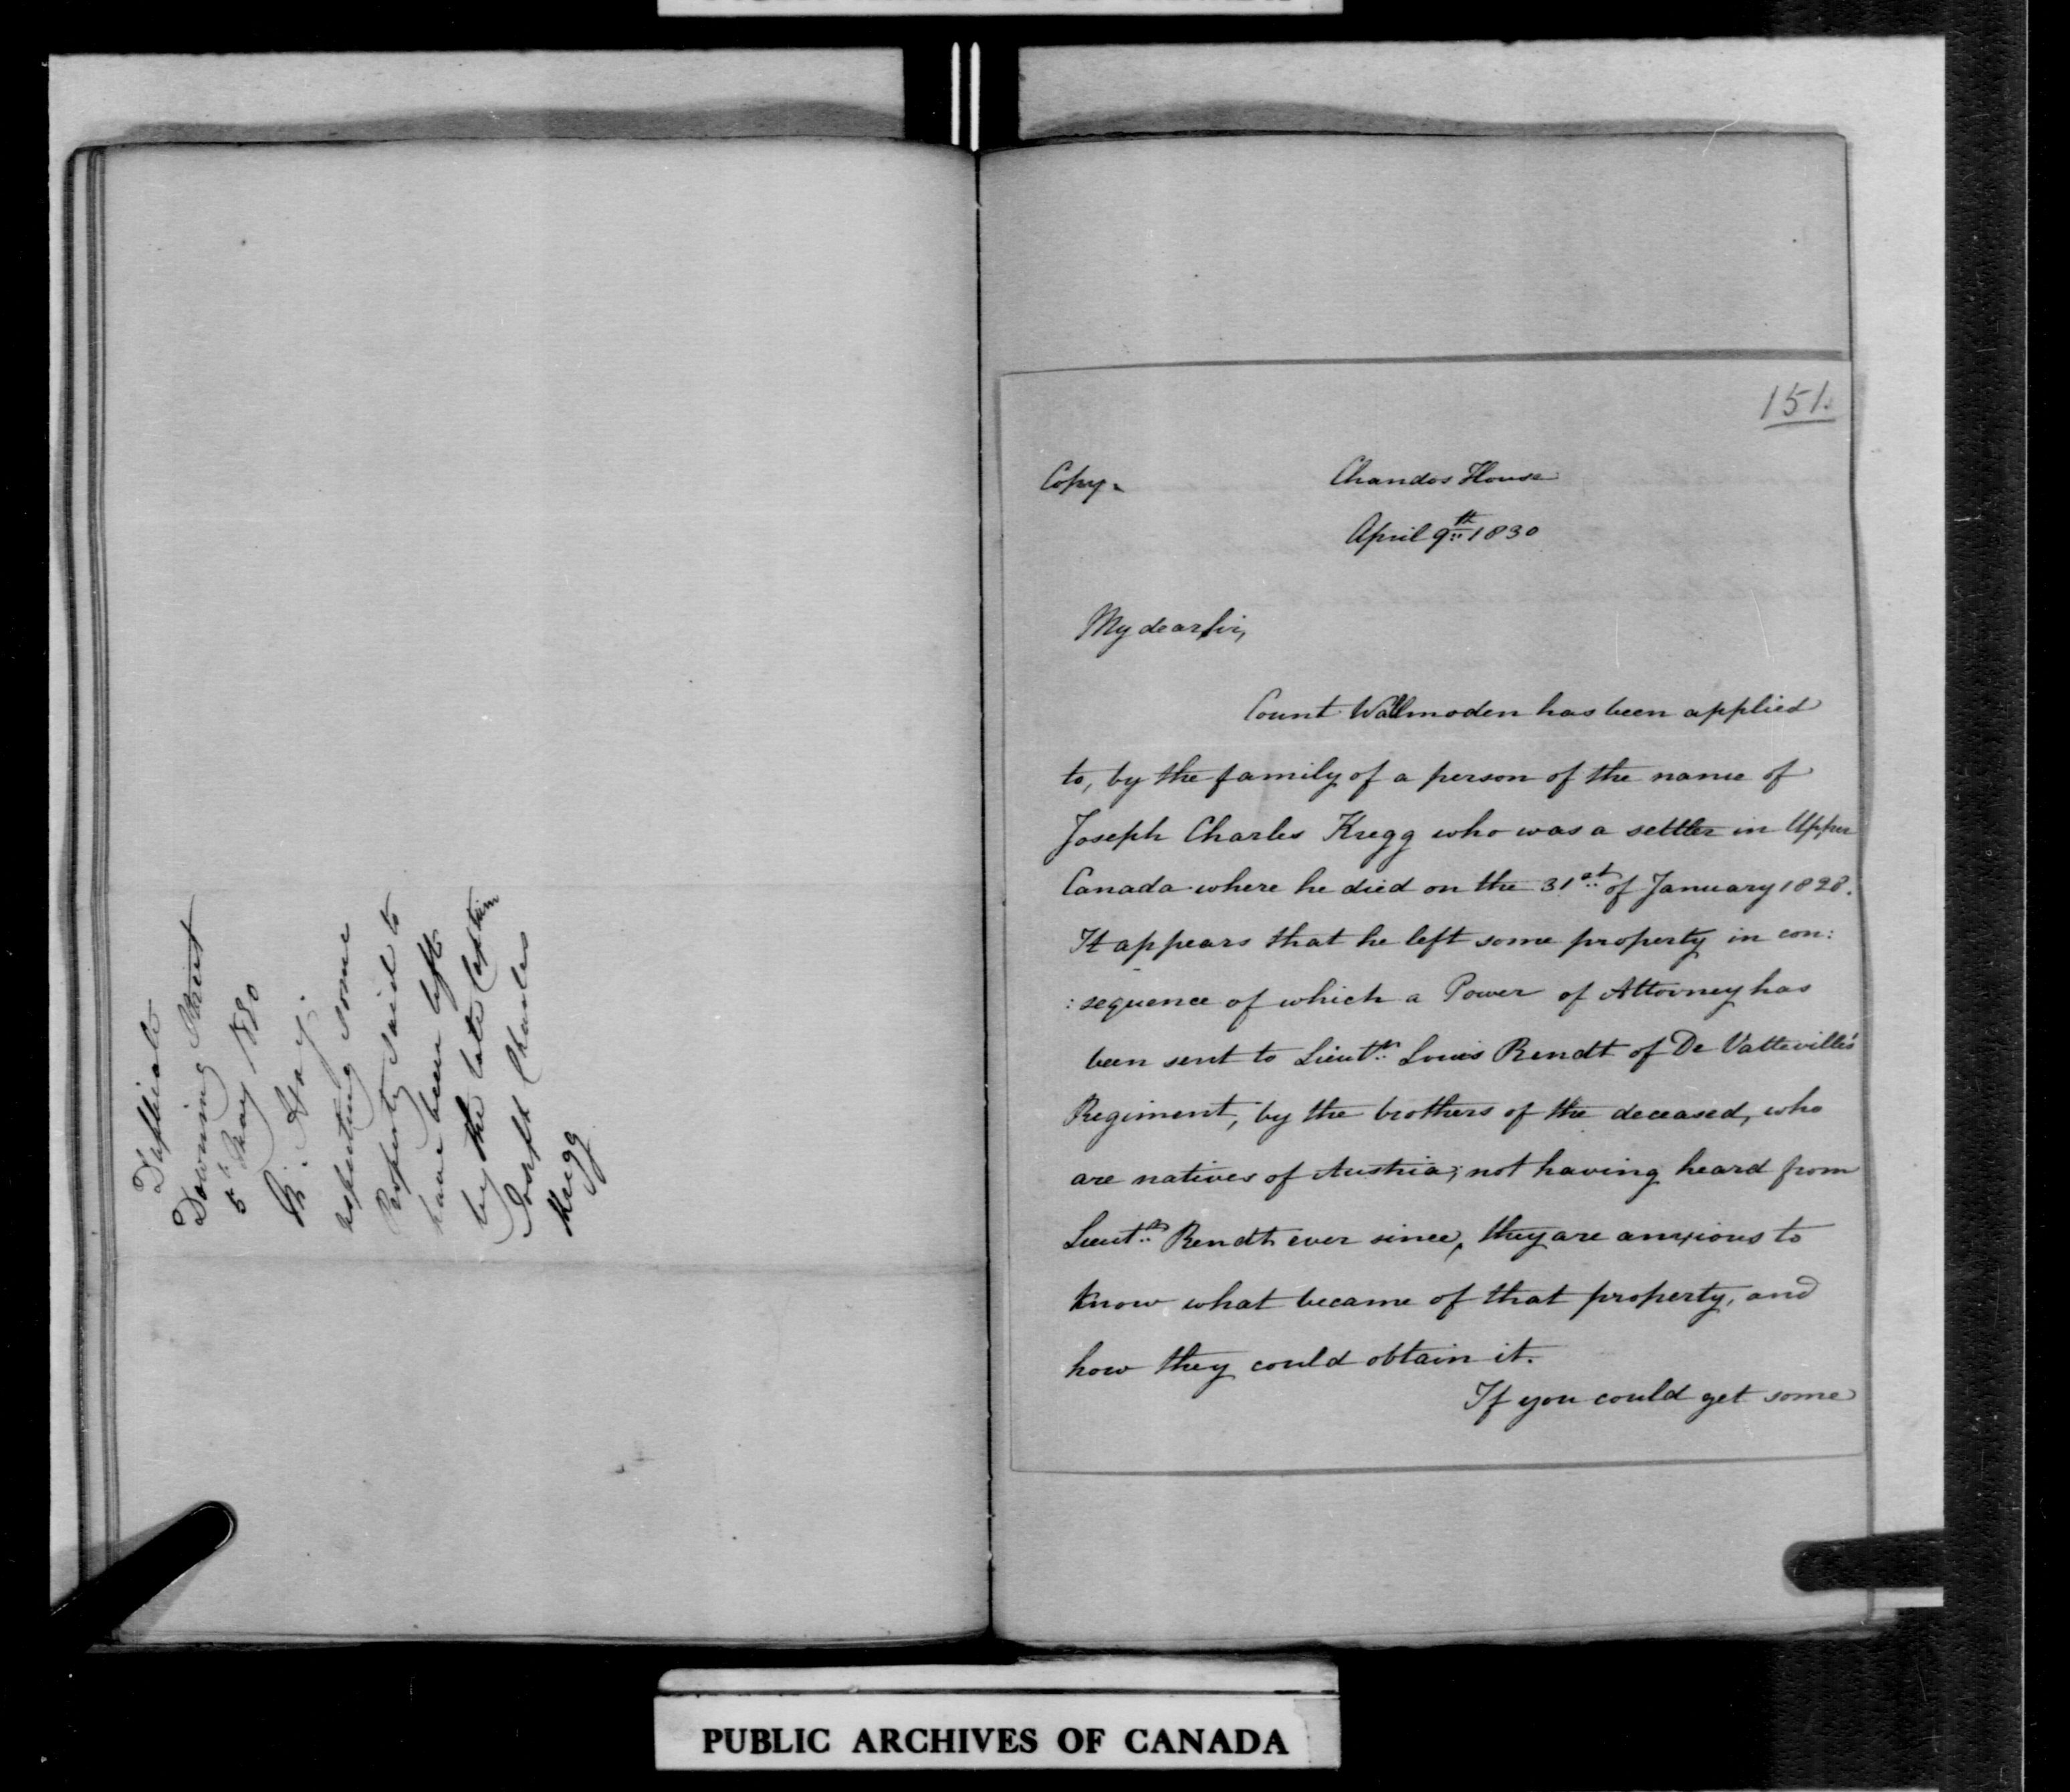 Duplicate
Downing Street
5th May 1830
Mr. Hay.
respecting some
Property said to
have been left
by the late Captain
Joseph Charles
Kregg
151.
Copy.
Chandos House
April 9th 1830
My dear Sir,
Count Wallmoden has been applied
to, by the family of a person of the name of
Joseph Charles Kregg who was a settler in Upper
Canada where he died on the 31st of January 1828.
It appears that he left some property in con:
:sequence of which a Power of Attorney has
been sent to Lieutt. Louis Rendt of De Vatteville's
Regiment, by the brothers of the deceased, who
are natives of Austria; not having heard from
Lieutt. Rendt ever since, they are anxious to
know what became of that property, and
how they could obtain it.
If you could get some
PUBLIC ARCHIVES OF CANADA